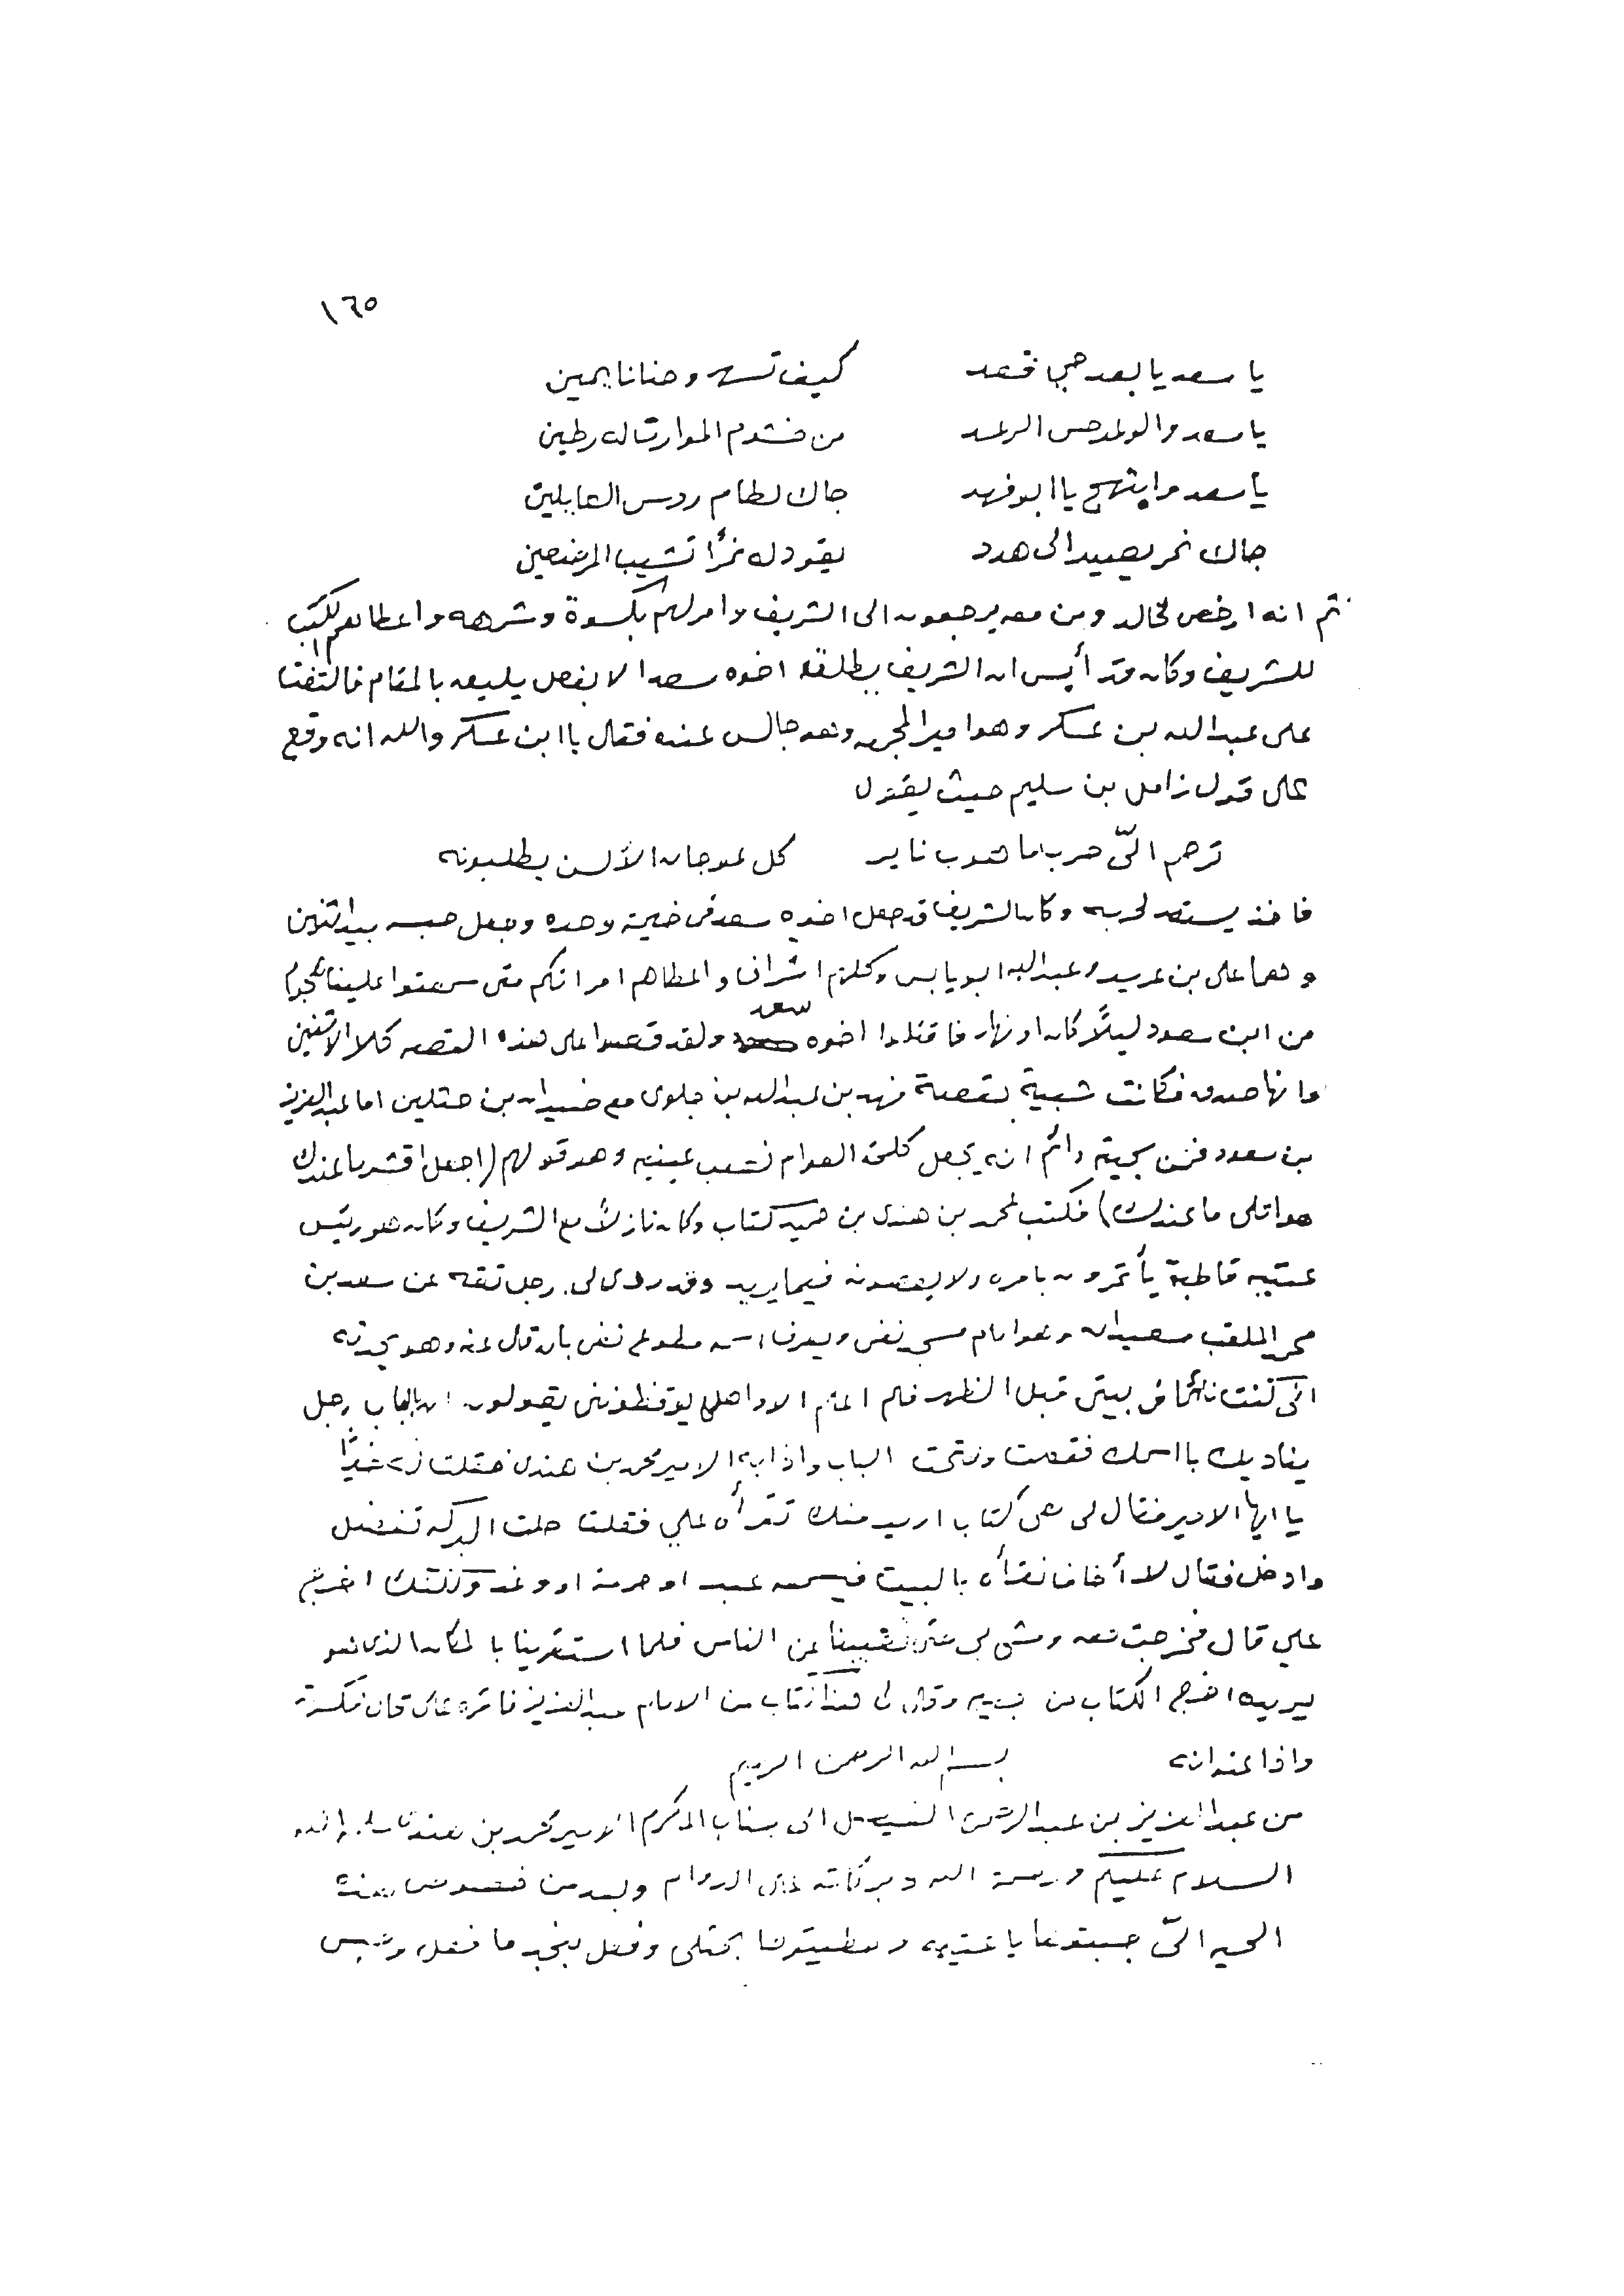 ١٦٥
يا سعد يا بعد حي قعد كيف تسهر وحنا نايمين
يا سعد والولد حس الرعد من خشوم الموارت له رطين
يا سعد وابتهج يا ابو فهد جاك لطام روس العايلين
جاك نمر يصيد الى هدد يقود له نمرًا تشيب المرضعين
ثم انه ارخص لخالد ومن معه يرجعون الى الشريف وامر لهم بكسوة وشرهه واعطاهم الكتب
للشريف وكان قد أيس ان الشريف يطلق اخوه سعدا الا بفعل يليه بالمقام فالتفت
على عبدالله بن عسكر وهو امير المجمعه وهو جالس عنده فقال يا ابن عسكر والله انه وقع
على قول زامل بن سليم حيث يقول
ترحم اليّ حرب ما هوب ناير كل عوجان الألسن يطلبونه
فاخذ يستعد لحربه وكان الشريف قد جعل اخوه سعد في خيمة وحده وجعل حبسه بيد اثنين
وهما على بن عريد وعبدالله ابو يابس وكلهم اشراف واعطاهم امر انكم متى سمعتوا علينا هجوم
من ابن سعود ليلًا كان او نهار فاقتلوا اخوه سعد ولقد قصوا على هذه القصه كلا الاثنين
وانها صدق فكانت شبيهة بقصة فهد بن عبدالله بن جلوي مع ضيدان بن حثلين اما عبدالعزيز
بن سعود فمن سجيته دائم انه يجعل كلمة العوام نصب عينيه وهو قولهم (اجعل اقشر ما عندك
هو اتلى ما عندك) فكتب لمحمد بن هندي بن حميد كتاب وكان نازلًا مع الشريف وكان هو رئيس
عتيبه قاطبة يأتمرون بامره ولا يعصونه فيما يريد وقد روى لي رجل ثقه عن سعد بن
محمد الملقب سعيدان وهو امام مسجد نفي ويعرف اسمه مطوع نفي بأن قال عنه وهو يحدثه
انى كنت نائمًا في بيتي قبل الظهر فلم اعلم الا واهلي يوقظونني يقولون ان بالباب رجل
يناديك باسمك فقمت وفتحت الباب واذا به الامير محمد بن هندي فقلت زه خيرًا
يا ايها الامير فقال لي معي كتاب اريد منك تقرأه علي فقلت حلت البركه تفضل
وادخل فقال لا أخاف نقرأه بالبيت فيسمعه عبد او حرمة او وغد ولكنك اخرج
علي قال فخرجت معه ومشى بي حتى تغيبنا عن الناس فلما استقرينا بالمكان الذي هو
يريده اخرج الكتاب من جيبه وقال لي هذا كتاب من الامام عبدالعزيز فاقره علي قال فكسرته
واذا عنوانه بسم الله الرحمن الرحيم
من عبدالعزيز بن عبدالرحمن الفيصل الى جناب المكرم الامير محمد بن هندي سلمه الله
السلام عليكم ورحمة الله وبركاته على الدوام وبعد من خصوص هذه
الحيه اليّ جبتوها يا عتيبه وحطيتوها بحثلي وفعل بنجد ما فعل وحبس